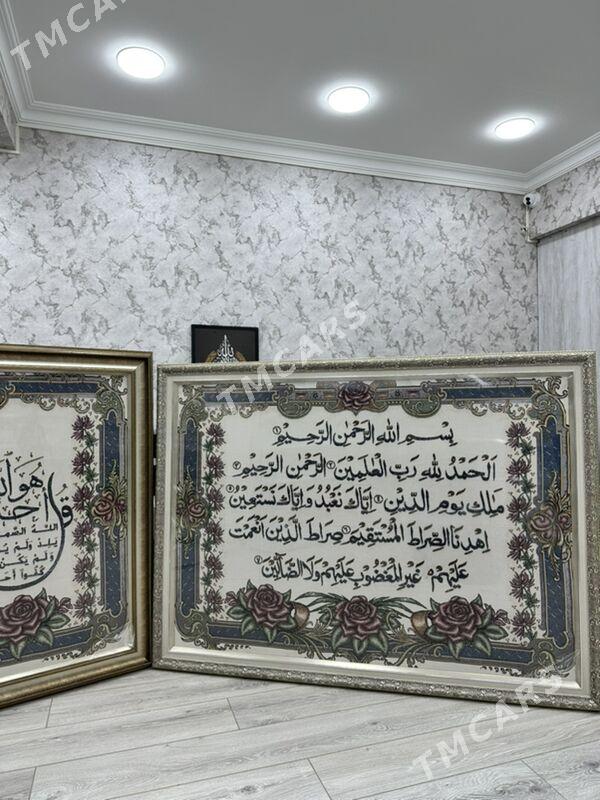 بِسْمِ اللهِ الرَّحْمٰنِ الرَّحِيْمِ ١
اَلْحَمْدُ لِلّٰهِ رَبِّ الْعٰلَمِيْنَ ٢ اَلرَّحْمٰنِ الرَّحِيْمِ ٣
مٰلِكِ يَوْمِ الدِّيْنِ ٤ اِيَّاكَ نَعْبُدُ وَاِيَّاكَ نَسْتَعِيْنُ ٥
اِهْدِنَا الصِّرَاطَ الْمُسْتَقِيْمَ ٦ صِرَاطَ الَّذِيْنَ اَنْعَمْتَ
عَلَيْهِمْ غَيْرِ الْمَغْضُوْبِ عَلَيْهِمْ وَلَا الضَّالِّيْنَ ٧
قُلْ هُوَ
TMCARS
TMCARS
TMCARS
TMCARS